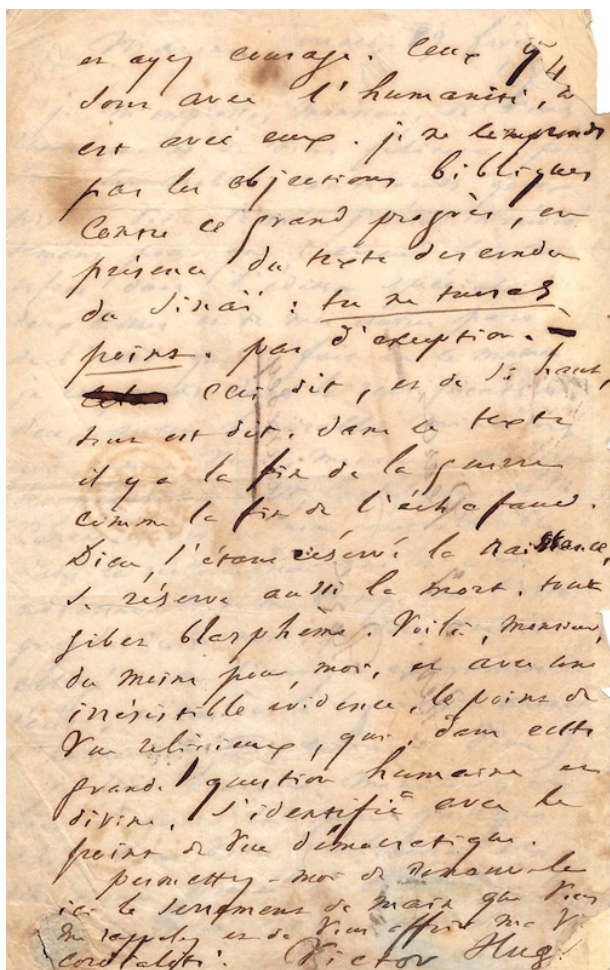 et ayez courage. Ceux q
sont avec l'humanité,
est avec eux. je ne comprends
pas les objections bibliques
contre ce grand progrès, en
présence du texte descendu
du Sinaï : tu ne tueras
point. pas d'exception.
ceci dit, et de si haut,
tout est dit. dans ce texte
il y a la fin de la guerre
comme la fin de l'échafaud.
Dieu, s'étant réservé la naissance,
se réserve aussi la mort. tout
gibet blasphème. Voilà, monsieur,
du moins pour moi, et avec une
irrésistible évidence, le point de
vue religieux, qui, dans cette
grande question humaine et
divine, s'identifie avec le
point de vue démocratique.
permettez-moi de
ici le serrement de main que vous
me rappelez et de vous offrir ma V
cordialité. Victor Hug